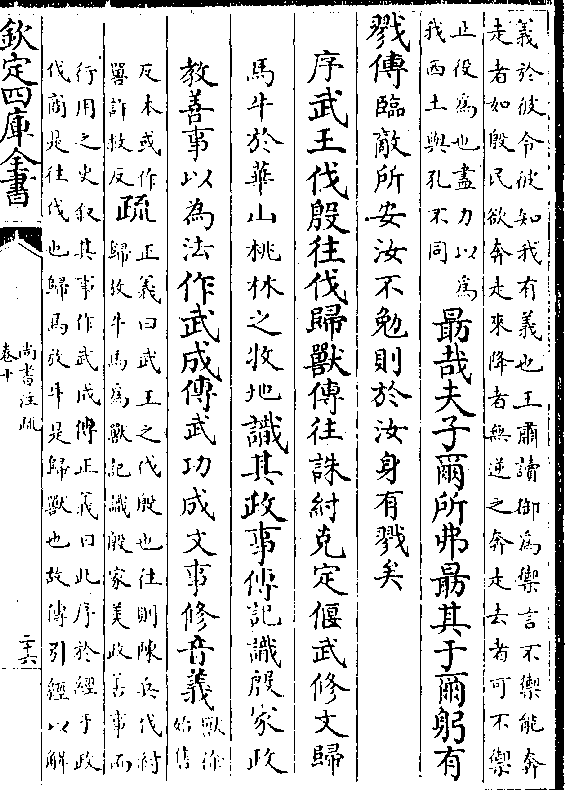 義於彼令彼知我有義也王肅讀御為禦言不禦能奔
走者如殷民欲奔走來降者無逆之奔走去者可不禦
止役為也盡力以為
我西土與孔不同
朂哉夫子爾所弗朂其于爾躬有
戮傳臨敵所安汝不勉則於汝身有戮矣
序武王伐殷往伐歸獸傳往誅紂克定偃武修文歸
馬牛於華山桃林之牧地識其政事傳記識殷家政
教善事以為法作武成傳武功成文事修音義
獸徐
始售
反本或作
嘼許救反
疏
正義曰武王之伐殷也往則陳兵伐紂
歸放牛馬為獸記識殷家美政善事而
行用之史叙其事作武成傳正義曰此序於經于政
代商是往伐也歸馬放牛是歸獸也故傳引經以解
欽定四庫全書
尚書注疏
卷十
二十六